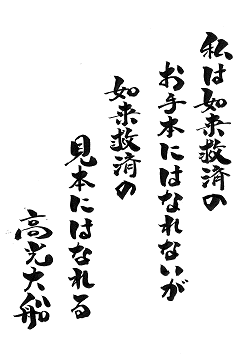 私は如来救済の
お手本にはなれないが
如来救済の
見本にはなれる
高光大船